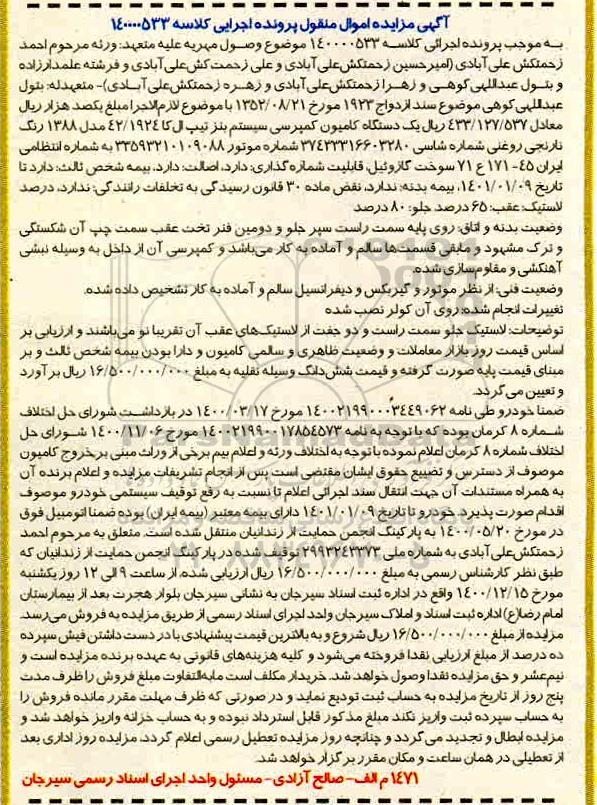 آگهی مزایده اموال منقول پرونده اجرایی کلاسه ۱۴۰۰۰۰۵۳۳
به موجب پرونده اجرائی کلاسه ۱۴۰۰۰۰۵۳۳ موضوع وصول مهریه علیه متعهد: ورثه مرحوم احمد
زحمتکش علی آبادی (امیرحسین زحمتکش‌علی آبادی و علی زحمت کش‌علی آبادی و فرشته علمدارزاده
و بتول عبداللهی کوهی و زهرا زحمتکش‌علی آبادی و زهره زحمتکش علی‌آبادی)- متعهدله: بتول
عبداللهی کوهی موضوع سند ازدواج ۱۹۲۳ مورخ ۱۳۵۲/۰۸/۲۱ با موضوع لازم‌الاجرا مبلغ یکصد هزار ریال
معادل ۴۳۳/۱۲۷/۵۳۷ ریال یک دستگاه کامیون کمپرسی سیستم بنز تیپ ال‌کا ۴۲/۱۹۲۴ مدل ۱۳۸۸ رنگ
نارنجی روغنی شماره شاسی ۳۷۴۳۳۳۱۶۶۰۳۲۸۰ شماره موتور ۳۳۵۹۳۲۱۰۱۰۹۰۸۸ به شماره انتظامی
ایران ۴۵- ۱۷۱ ع ۷۱ سوخت گازوئیل، قابلیت شماره گذاری: دارد، اصالت: دارد، بیمه شخص ثالث: دارد تا
تاریخ ۱۴۰۱/۰۱/۰۹، بیمه بدنه: ندارد، نقض ماده ۳۰ قانون رسیدگی به تخلفات رانندگی: ندارد، درصد
لاستیک: عقب: ۶۵ درصد جلو: ۸۰ درصد
وضعیت بدنه و اتاق: روی پایه سمت راست سپر جلو و دومین فنر تخت عقب سمت چپ آن شکستگی
و ترک مشهود و مابقی قسمت‌ها سالم و آماده به کار می‌باشد و کمپرسی آن از داخل به وسیله نبشی
آهنکشی و مقاوم‌سازی شده.
وضعیت فنی: از نظر موتور و گیربکس و دیفرانسیل سالم و آماده به کار تشخیص داده شده.
تغییرات انجام شده: روی آن کولر نصب شده
توضیحات: لاستیک جلو سمت راست و دو جفت از لاستیک‌های عقب آن تقریبا نو می‌باشند و ارزیابی بر
اساس قیمت روز بازار معاملات و وضعیت ظاهری و سالمی کامیون و دارا بودن بیمه شخص ثالث و بر
مبنای قیمت پایه صورت گرفته و قیمت شش‌دانگ وسیله نقلیه به مبلغ ۱۶/۵۰۰/۰۰۰/۰۰۰ ریال بر آورد
و تعیین می گردد.
ضمنا خودرو طی نامه ۱۴۰۰۲۱۹۹۰۰۰۳۴۴۹۰۶۲ مورخ ۱۴۰۰/۰۳/۱۷ در بازداشت شورای حل اختلاف
شماره ۸ کرمان بوده که با توجه به نامه ۱۴۰۰۲۱۹۹۰۰۱۷۸۵۴۵۷۳ مورخ ۱۴۰۰/۱۱/۰۶ شورای حل
اختلاف شماره ۸ کرمان اعلام نموده با توجه به اختلاف ورثه و اعلام بیم برخی از وراث مبنی بر خروج کامیون
موصوف از دسترس و تضییع حقوق ایشان مقتضی است پس از انجام تشریفات مزایده و اعلام برنده آن
به همراه مستندات آن جهت انتقال سند اجرائی اعلام تا نسبت به رفع توقیف سیستمی خودرو موصوف
اقدام صورت پذیرد. خودرو تا تاریخ ۱۴۰۱/۰۱/۰۹ دارای بیمه معتبر (بیمه ایران) بوده ضمنا اتومبیل فوق
در مورخ ۱۴۰۰/۰۵/۲۰ به پارکینگ انجمن حمایت از زندانیان منتقل شده است. متعلق به مرحوم احمد
زحمتکش‌علی آبادی به شماره ملی ۲۹۹۳۲۴۳۳۷۳ توقیف شده در پارکینگ انجمن حمایت از زندانیان که
طبق نظر کارشناس رسمی به مبلغ ۱۶/۵۰۰/۰۰۰/۰۰۰ ریال ارزیابی شده، از ساعت ۹ الی ۱۲ روز یکشنبه
مورخ ۱۴۰۰/۱۲/۱۵ واقع در اداره ثبت اسناد سیرجان به نشانی سیرجان بلوار هجرت بعد از بیمارستان
امام رضا(ع) اداره ثبت اسناد و املاک سیرجان واحد اجرای اسناد رسمی از طریق مزایده به فروش می‌رسد.
مزایده از مبلغ ۱۶/۵۰۰/۰۰۰/۰۰۰ ریال شروع و به بالاترین قیمت پیشنهادی با در دست داشتن فیش سپرده
ده درصد از مبلغ ارزیابی نقدا فروخته می‌شود و کلیه هزینه‌های قانونی به عهده برنده مزایده است و
نیم‌عشر و حق مزایده نقدا وصول خواهد شد. خریدار مکلف است مابه‌التفاوت مبلغ فروش را ظرف مدت
پنج روز از تاریخ مزایده به حساب ثبت تودیع نماید و در صورتی که ظرف مهلت مقرر مانده فروش را
به حساب سپرده ثبت واریز نکند مبلغ مذکور قابل استرداد نبوده و به حساب خزانه واریز خواهد شد و
مزایده ابطال و تجدید می گردد و چنانچه روز مزایده تعطیل رسمی اعلام گردد، مزایده روز اداری بعد
از تعطیلی در همان ساعت و مکان مقرر برگزار خواهد شد.
۱۴۷۱ م الف- صالح آزادی- مسئول واحد اجرای اسناد رسمی سیرجان